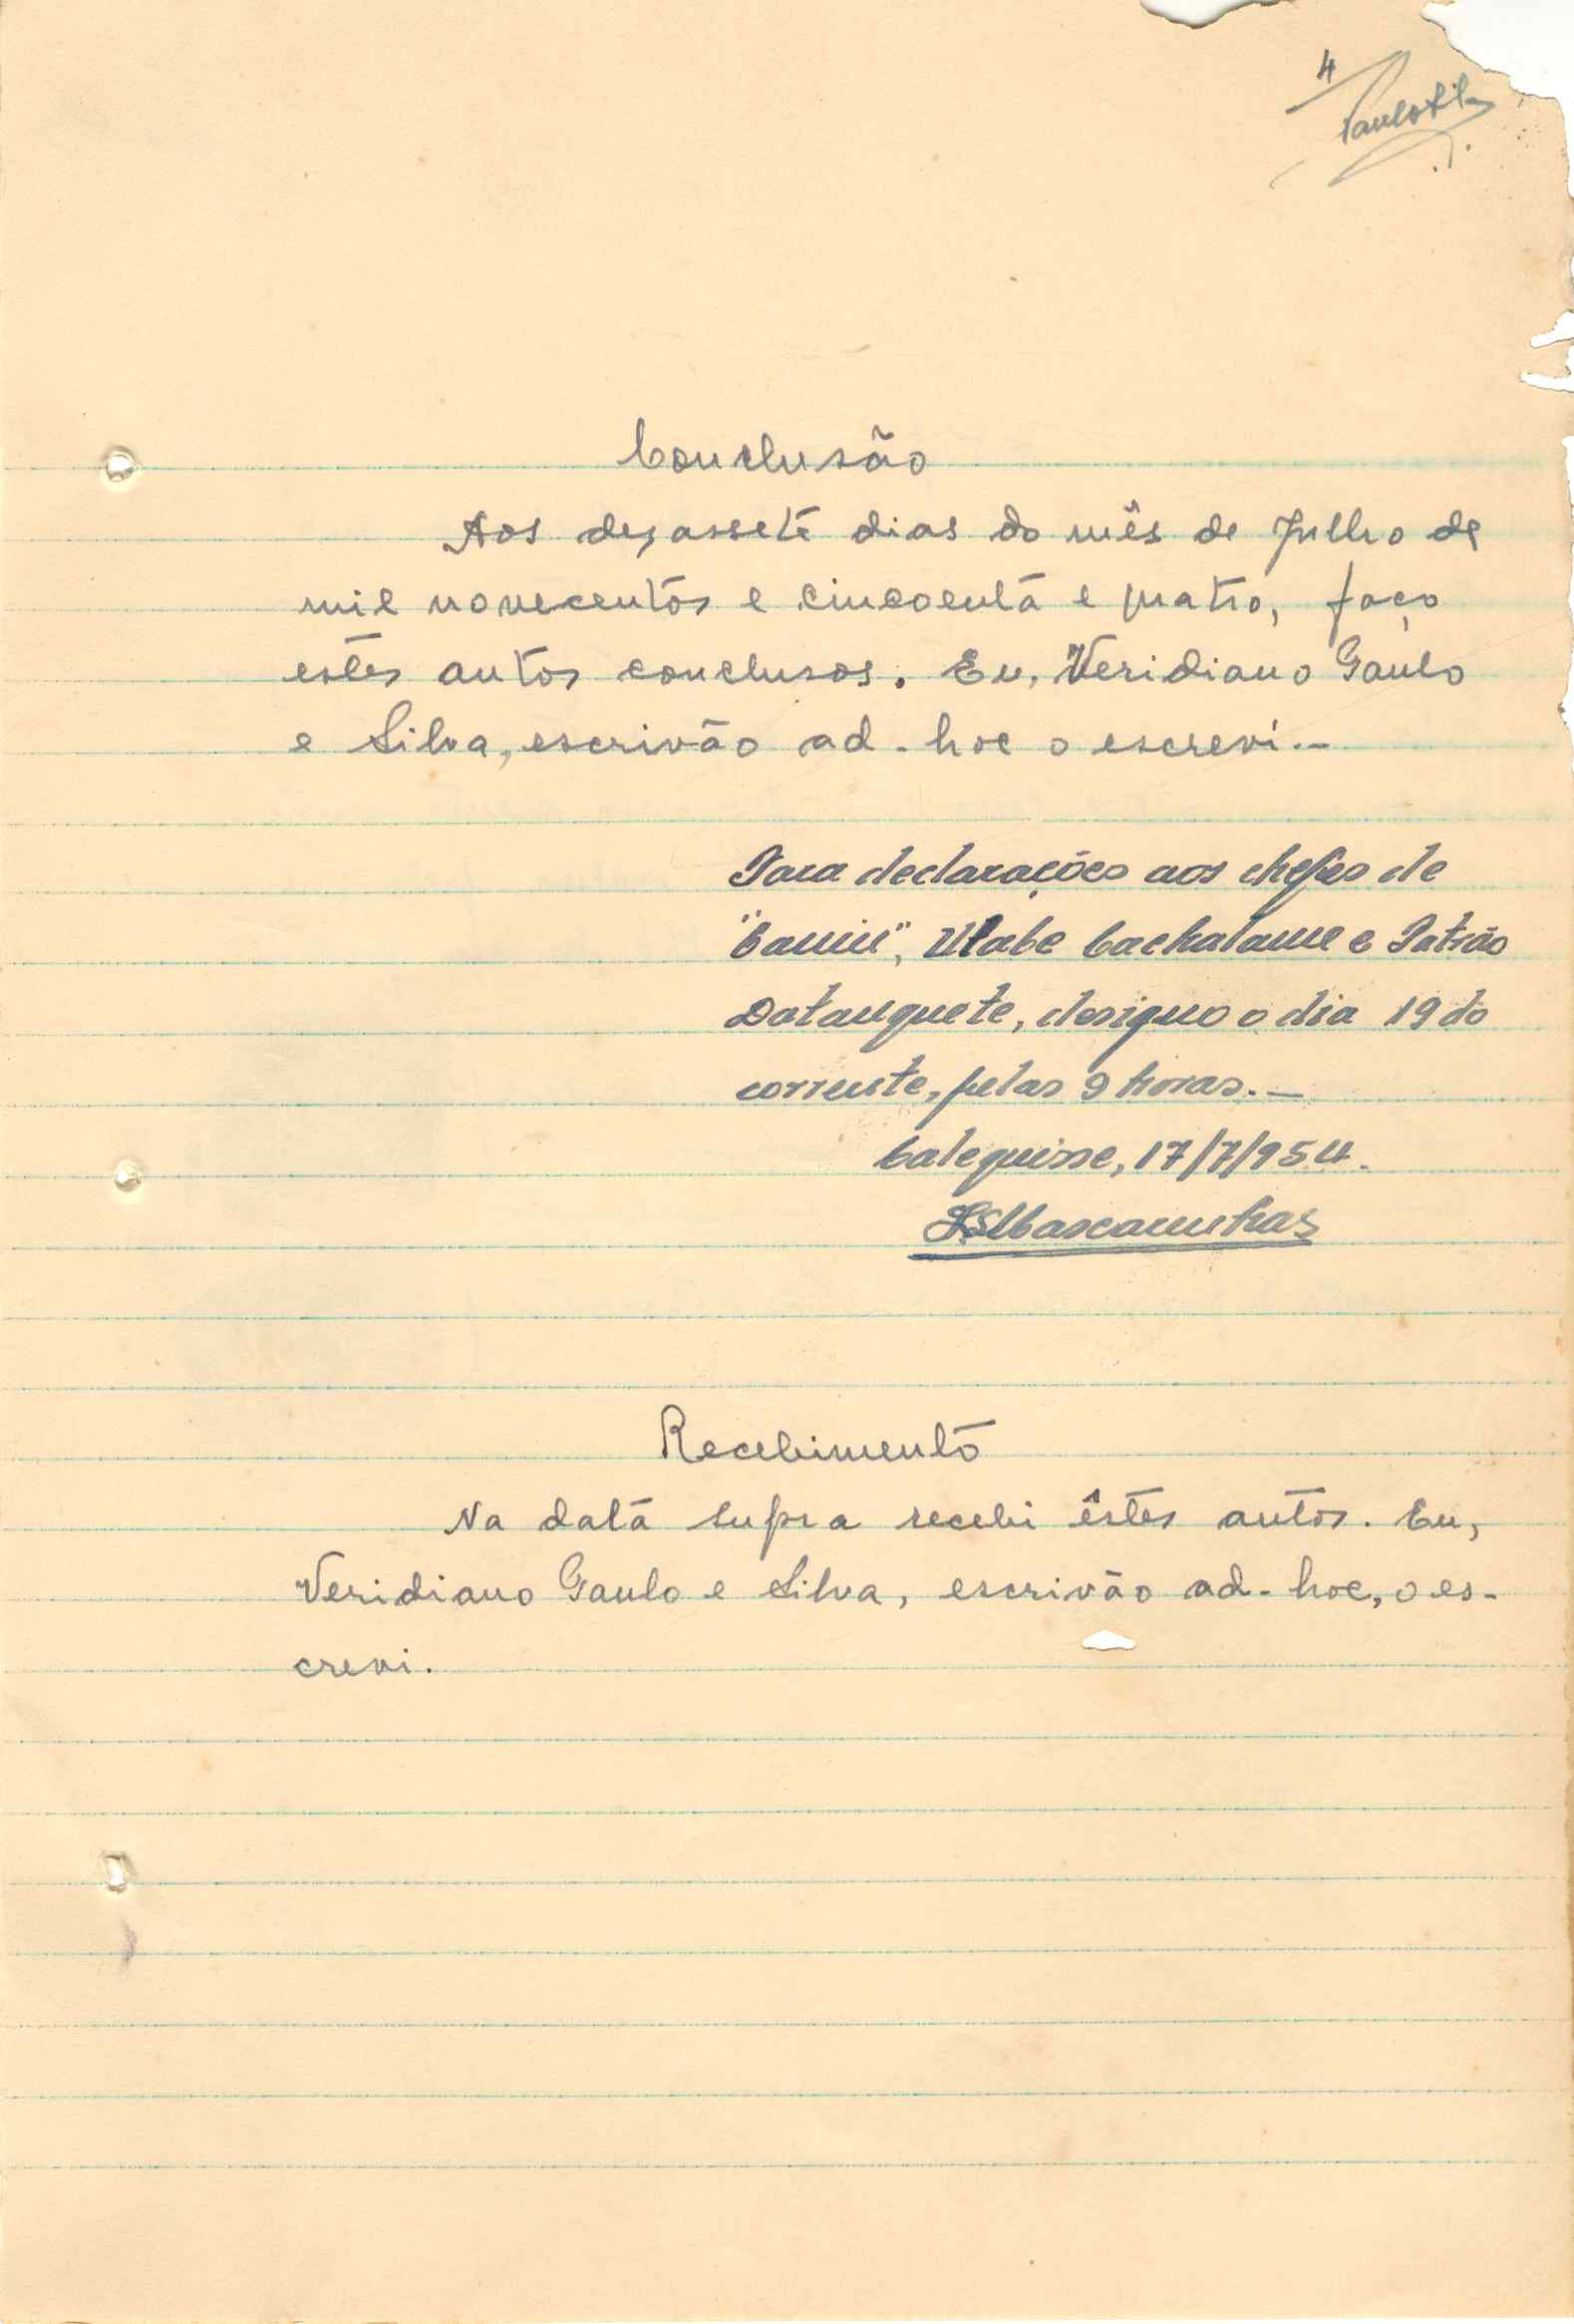 4
Conclusão
Aos dezassete dias do mês de Julho de
mil novecentos e cincoenta e quatro, faço
estes autos conclusos. Eu, Veridiano Gaulo
e Silva, escrivão ad-hoc o escreví.-
Para declarações aos chefes de
e Patrão
Datanguete, designo o dia 19 do
corrente, pelas 9 horas.-
Caleguisse, 17/7/954.
Recebimento
Na data supra recebi êstes autos. Eu,
Veridiano Gaulo e Silva, escrivão ad-hoc, o es-
crevi.